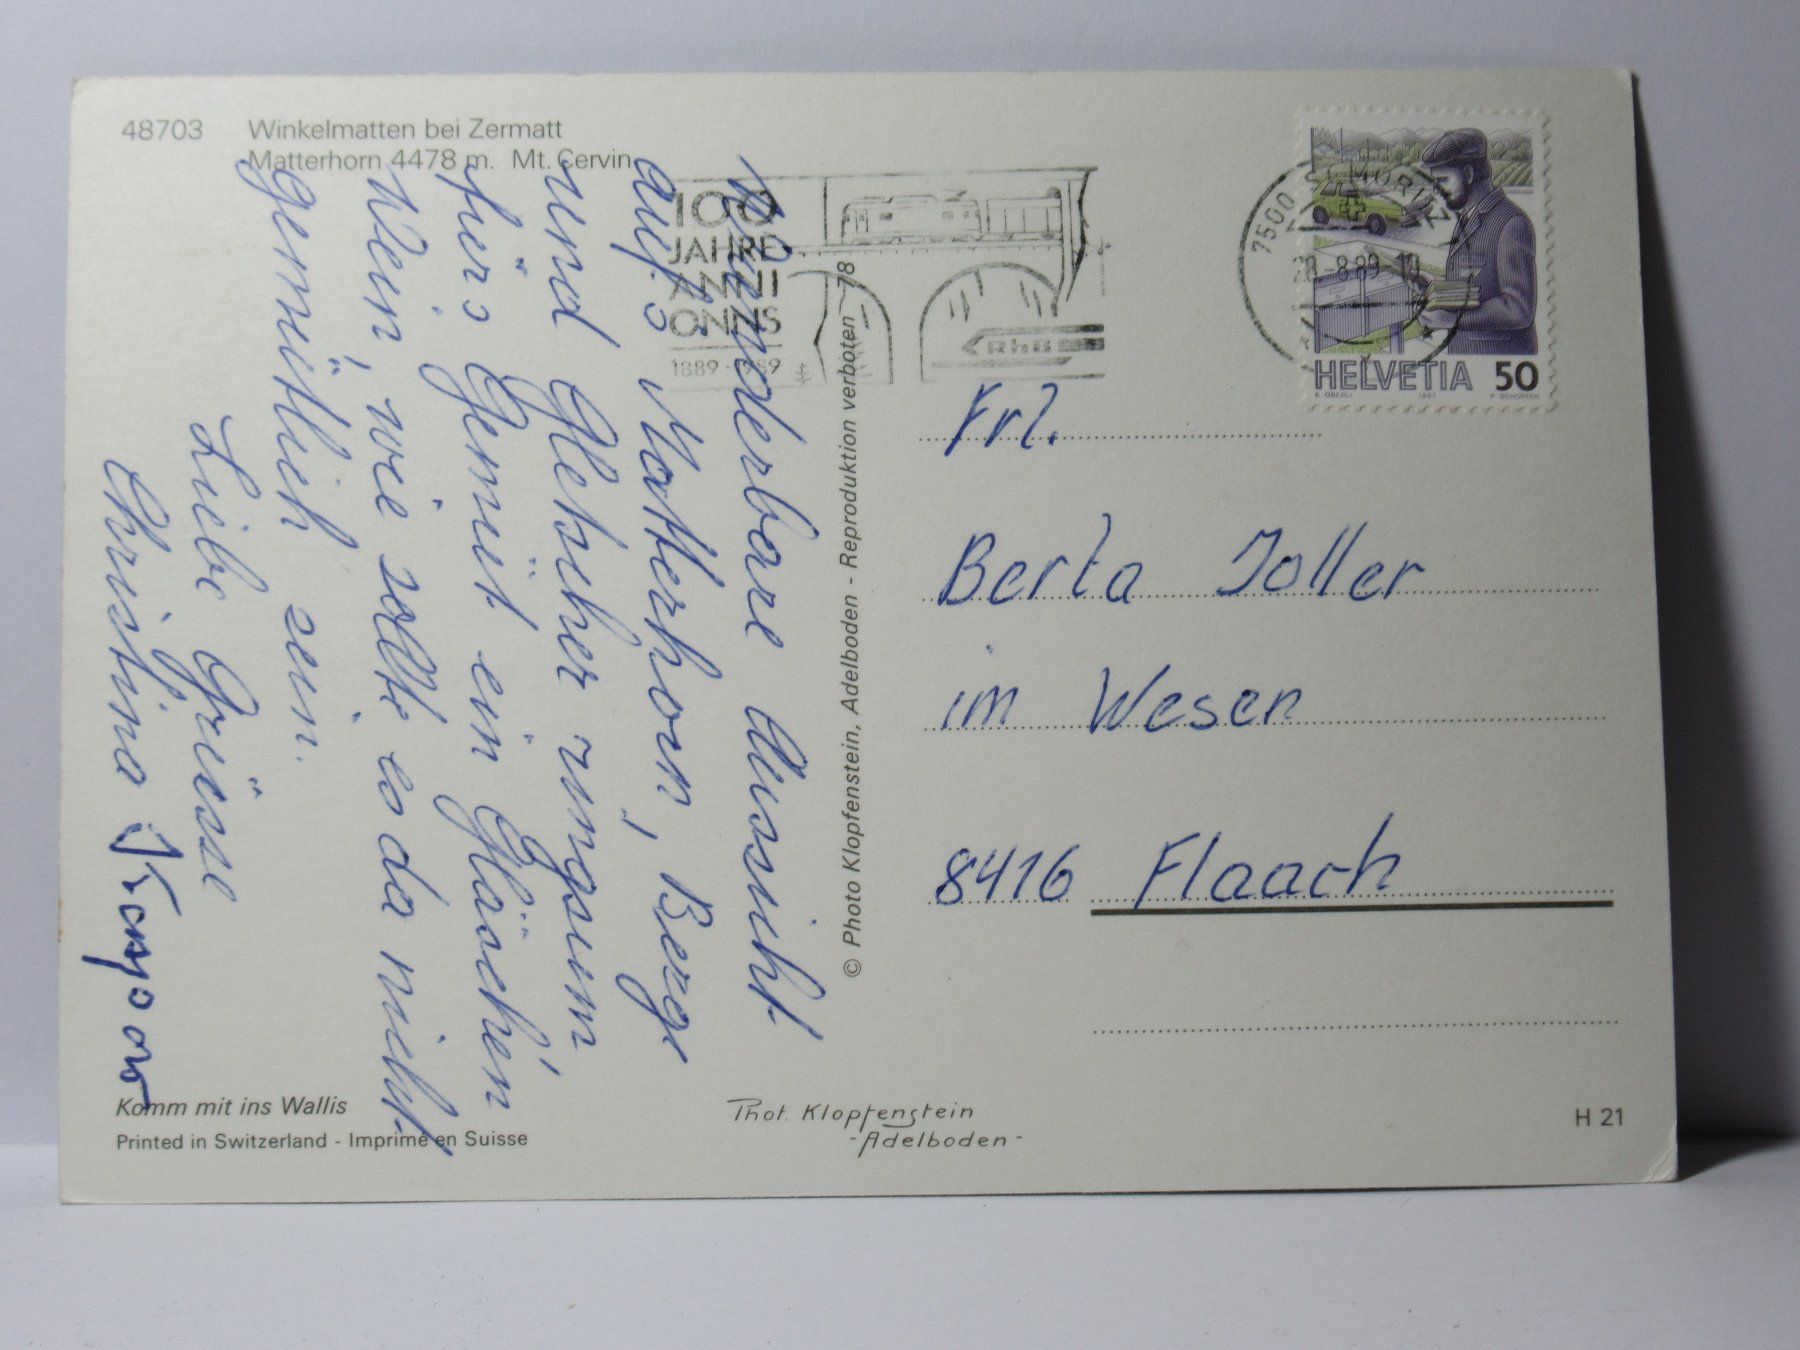 48703 Winkelmatten bei Zermatt
Matterhorn 4478 m. Mt. Cervin
Wunderbare Aussicht
aufs Matterhorn, Berge
und Gletscher ringsum
fürs Gemüt ein Gläschen
Wein, wie sollte es da nicht
gemütlich sein.
Liebe Grüsse
Christina
© Photo Klopfenstein, Adelboden - Reproduktion verboten - 78
100
JAHRE
ANNI
ONNS
1889-1989
RhB
7500 ST. MORITZ
-8.89
HELVETIA 50
K. OBERLI 1987 P. SCHOPFER
Frl.
Berta Joller
im Wesen
8416 Flaach
Komm mit ins Wallis
Printed in Switzerland - Imprimé en Suisse
Phot. Klopfenstein
- Adelboden -
H 21